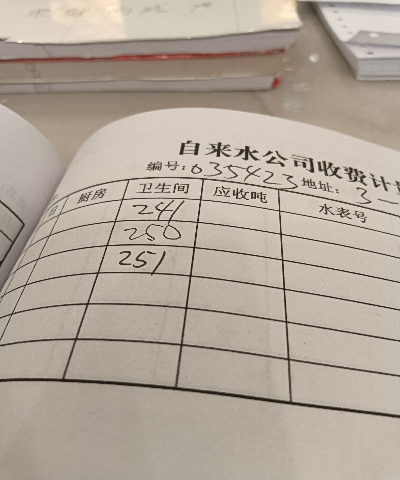 自来水公司收费计
编号:0635423 地址: 3-
厨房 卫生间 应收吨 水表号
241
250
251